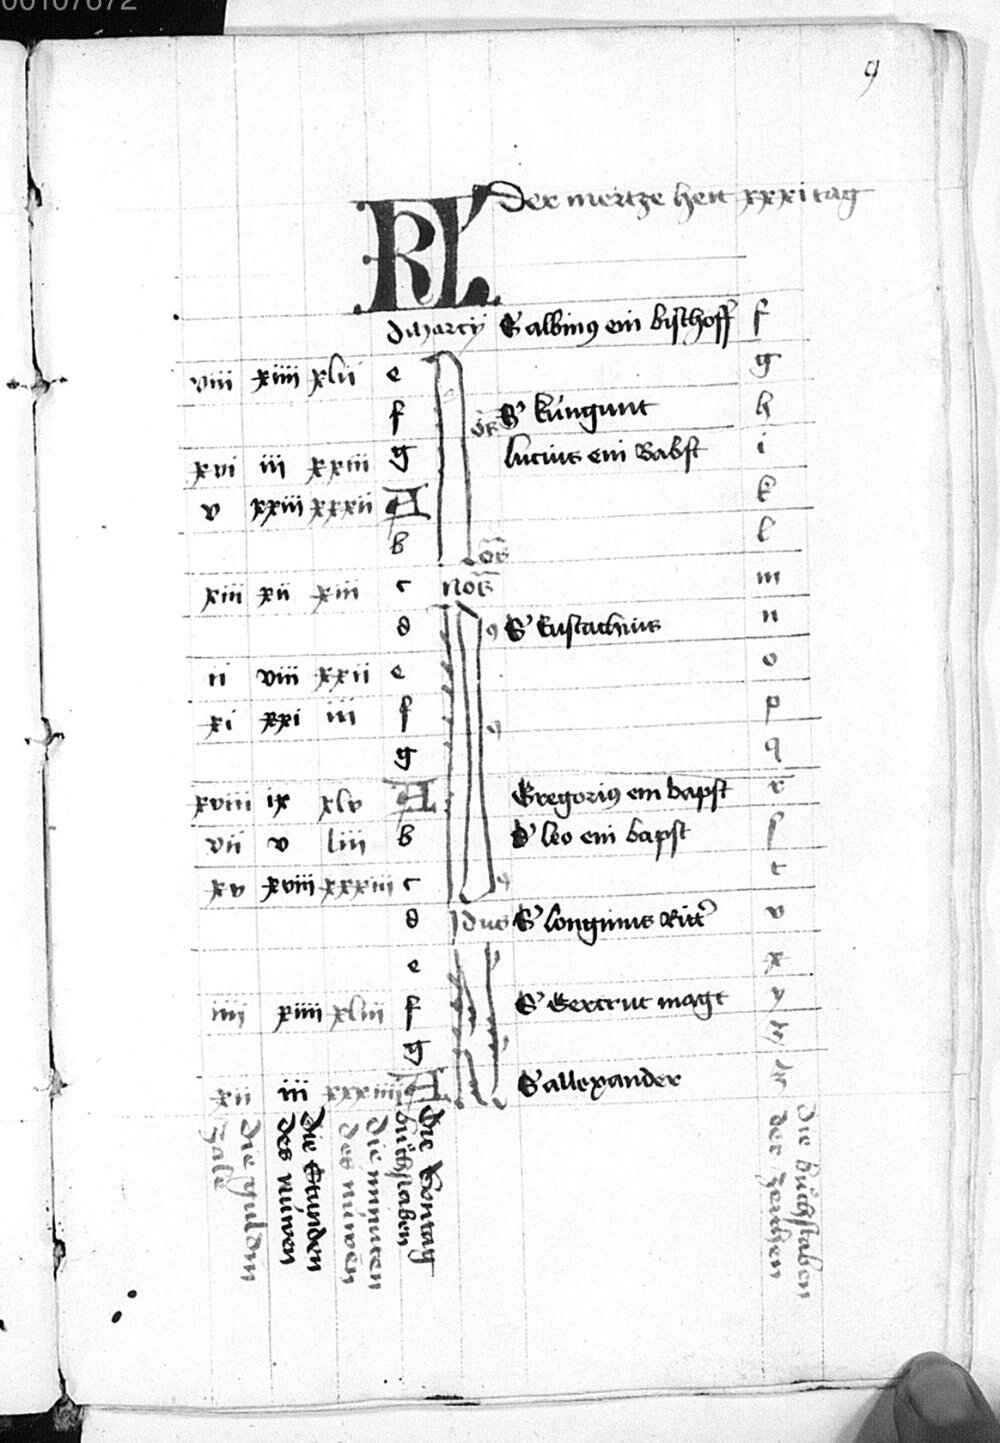 00107672
9
Der mertze hett xxxi tag
KL
d Marcij S albinus ein bischoff f
viii xiiii xlii e g
f S' kúngunt h
xvi iii xxiii g lucius ein Babst i
v xxiii xxxii A k
b l
xiii xii xiii c nos m
d S' Eustachius n
ii viii xxii e o
xi xxi iii f p
g q
xviii ix xlv A Gregorius ein bapst r
vii v liii b S' leo ein bapst s
xv xviii xxxiii c t
d Idus S' longinus Ritter v
e x
iiii xiiii xliii f S' Gertrut magt y
g
xii iii xxxiiii A S allexander
Die guldin
zale
Die Stunden
des nuwen
die minuten
des nuwen
Die Sontag
buchstaben
die buchstaben
der zeichen